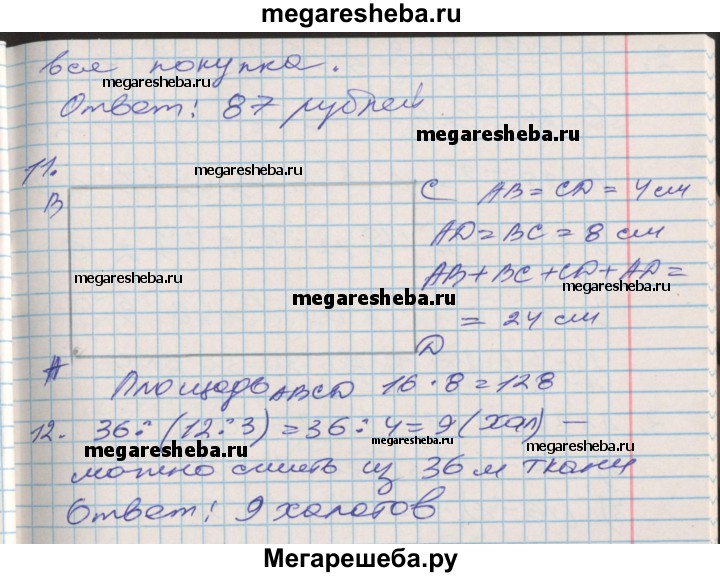 megaresheba.ru
вся покупка.
megaresheba.ru
Ответ: 87 рублей
megaresheba.ru
11.
megaresheba.ru
B
C AB = CD = 4 см
AD = BC = 8 см
megaresheba.ru
AB + BC + CD + AD =
megaresheba.ru
megaresheba.ru
= 24 см
D
A
Площадь ABCD 16 · 8 = 128
12. 36 : (12 : 3) = 36 : 4 = 9 (хал) –
megaresheba.ru
megaresheba.ru
можно сшить из 36 м ткани
Ответ: 9 халатов
megaresheba.ru
Мегарешеба.ру